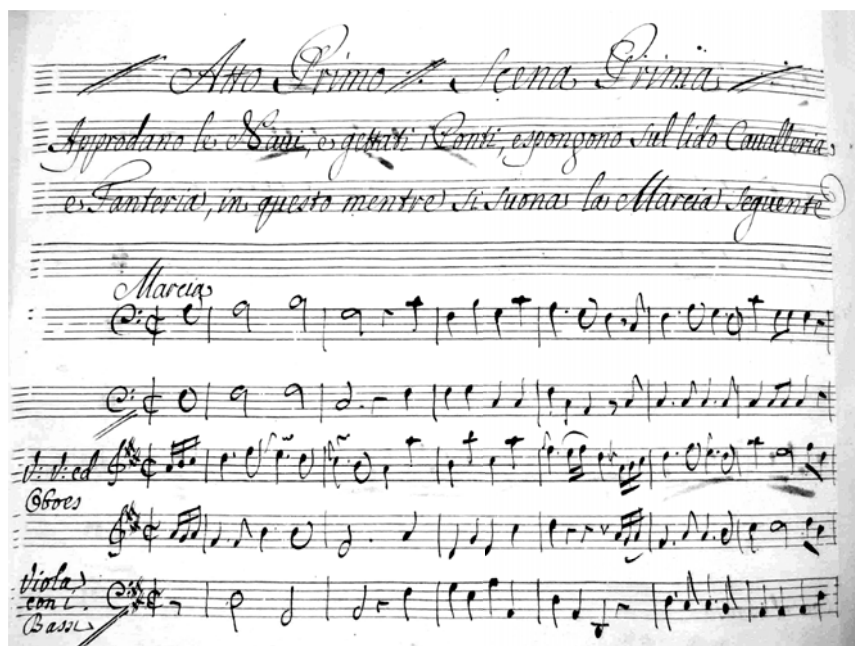 Atto Primo Scena Prima
Approdano le Navi, e gettati i Ponti, espongono sul lido Cavalleria
e Fanteria, in questo mentre si suona la Marcia seguente
Marcia
V: V: ed
Oboes
Viola
con i
Bassi